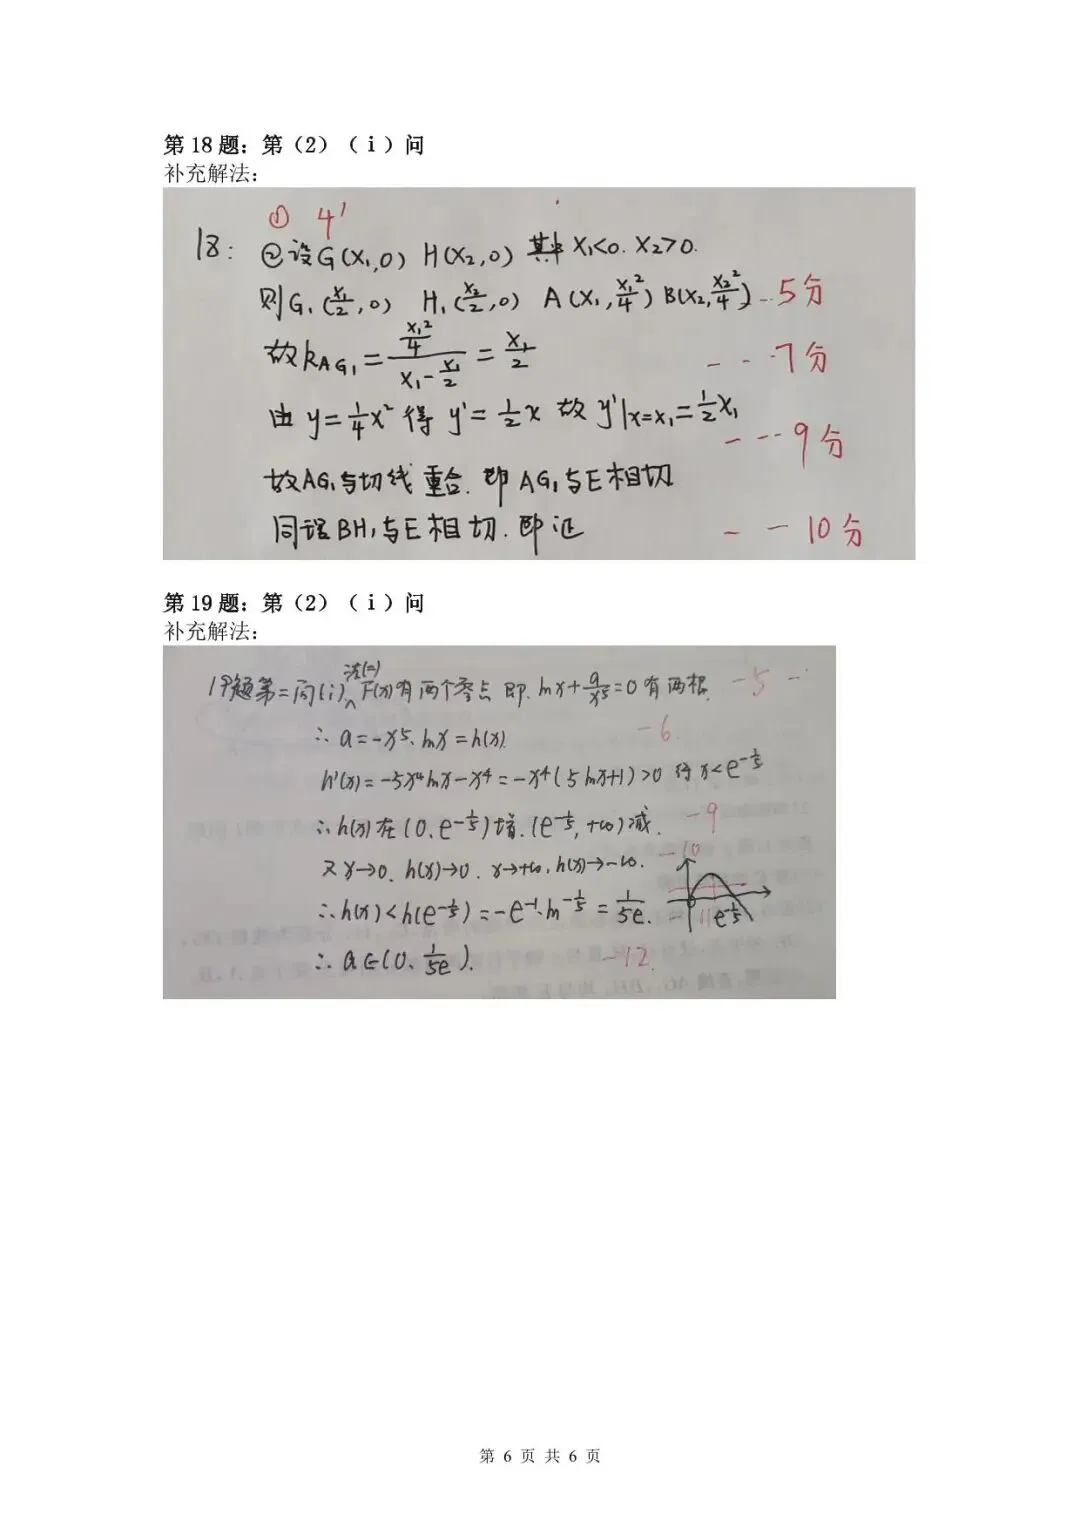 第 18 题：第（2）（ⅰ）问
补充解法：
① 4'
18: ②设G(x₁,0) H(x₂,0) 其中 x₁<0. x₂>0.
则G₁(x₁/2,0) H₁(x₂/2,0) A(x₁,x₁²/4) B(x₂,x₂²/4) --5分
故k_AG₁ = (x₁²/4)/(x₁-x₁/2) = x₁/2 ---7分
由 y=1/4x² 得 y'=1/2x 故 y'|x=x₁=1/2x₁ ---9分
故AG₁与切线重合. 即 AG₁与E相切
同理BH₁与E相切. 即证 --10分
第 19 题：第（2）（ⅰ）问
补充解法：
法(二)
19题第二问(i) F(x)有两个零点 即. lnx+a/x⁵=0有两根. -5-
∴ a=-x⁵·lnx=h(x) -6
h'(x)=-5x⁴lnx-x⁴=-x⁴(5lnx+1)>0 得 x<e^(-1/5)
∴ h(x)在(0,e^(-1/5))增.(e^(-1/5),+∞)减. -9
又x→0. h(x)→0. x→+∞, h(x)→-∞. -10
∴h(x)<h(e^(-1/5))=-e⁻¹·ln^(-1/5)=1/5e. 11 e^(-1/5)
∴ a∈(0, 1/5e). -12.
第 6 页 共 6 页